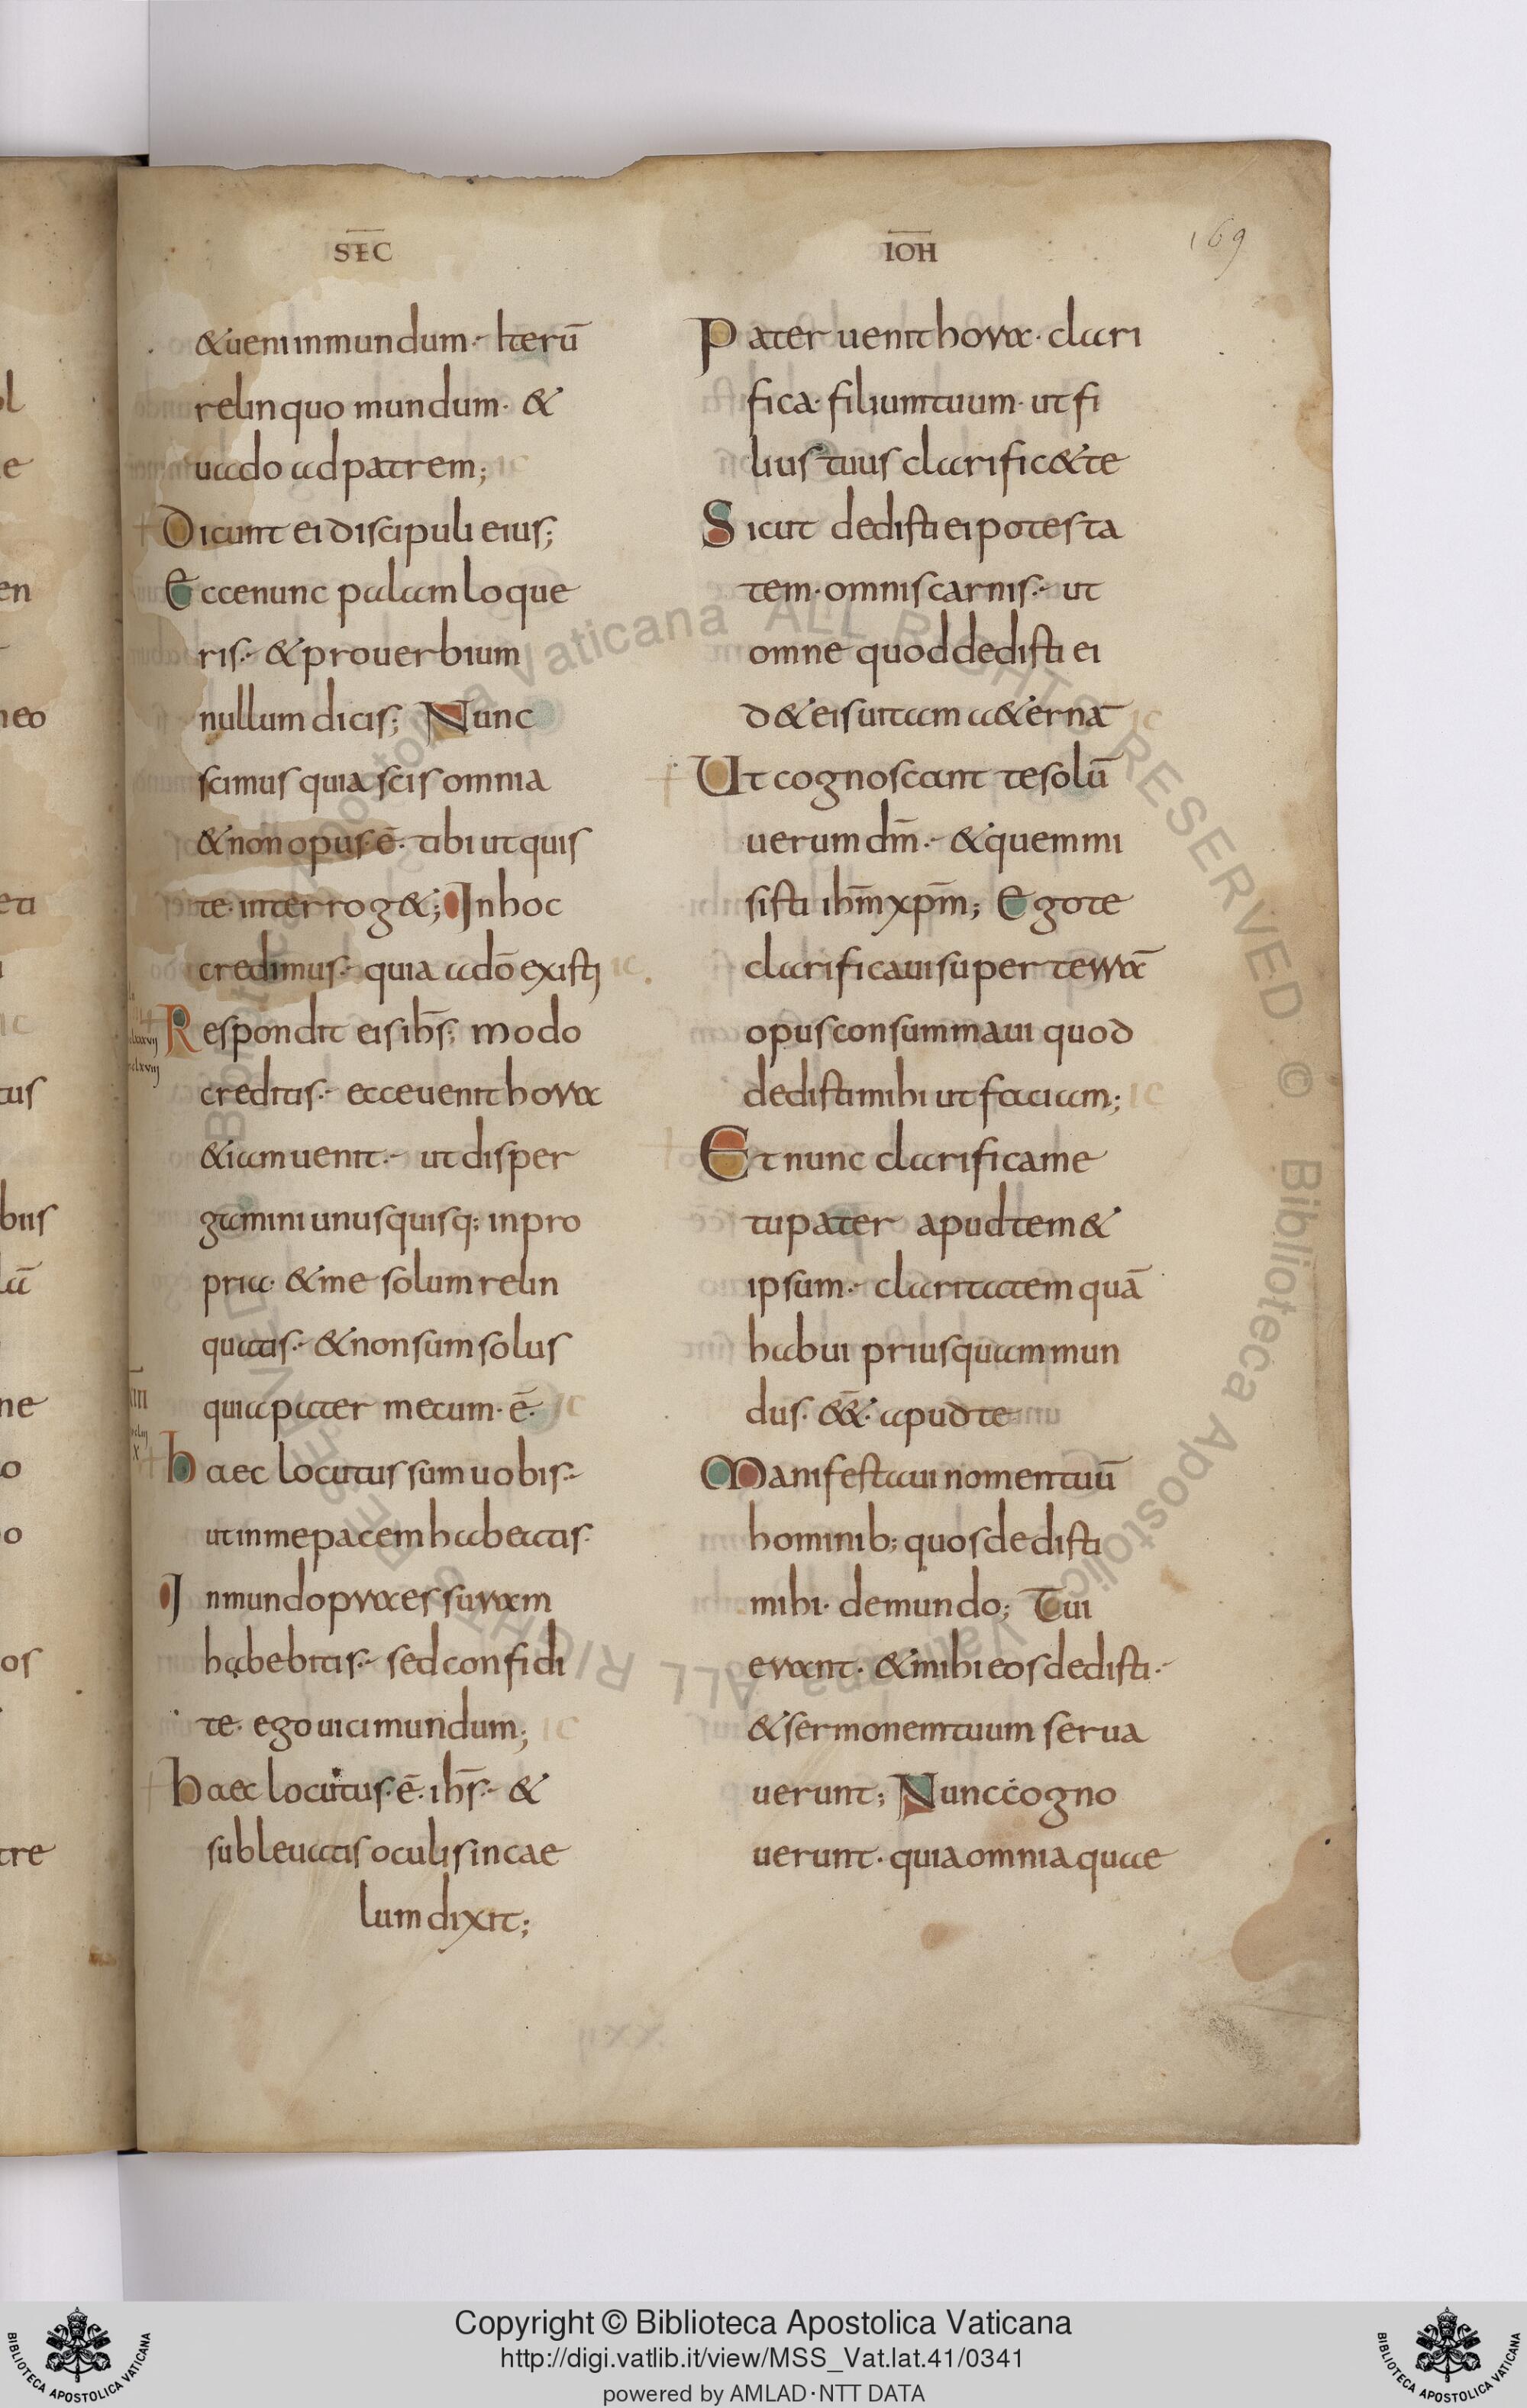 SEC
& ueni in mundum. Iterū
relinquo mundum. &
uado ad patrem;
Dicunt ei discipuli eius;
Ecce nunc palam loque
ris. & prouerbium
nullum dicis; Nunc
scimus quia scis omnia
& non opus. ē. tibi ut quis
te. interrog&; In hoc
credimus. quia a dō existi
Respondit eis ihs̄; modo
creditis. ecce uenit hora
& iam uenit. ut disper
gamini unusquisq; in pro
pria. & me solum relin
quatis. & non sum solus
quia pater mecum. ē.
haec locutus sum uobis.
ut in me pacem habeatis.
In mundo praessuram
habebitis. sed confidi
te. ego uici mundum;
haec locutus. ē. ihs̄. &
subleuatis oculis in cae
lum dixit;
IOH
169
Pater uenit hora. clari
fica. filium tuum. ut fi
lius tuus clarific& te
Sicut dedisti ei potesta
tem. omnis carnis. ut
omne quod dedisti ei
d& eis uitam a&ernā
Ut cognoscant te solū
uerum dm̄. & quem mi
sisti ihm̄ xpm̄; Ego te
clarificaui super terrā
opus consummaui quod
dedisti mihi ut faciam;
Et nunc clarifica me
tu pater apud tem&
ipsum. claritatem quā
habui priusquam mun
dus. &&. apud te
Manifestaui nomen tuū
hominib; quos dedisti
mihi. de mundo; Tui
erant. & mihi eos dedisti.
& sermonem tuum serua
uerunt; Nunc cogno
uerunt. quia omnia quae
Copyright © Biblioteca Apostolica Vaticana
http://digi.vatlib.it/view/MSS_Vat.lat.41/0341
powered by AMLAD·NTT DATA
BIBLIOTECA APOSTOLICA VATICANA
BIBLIOTECA APOSTOLICA VATICANA